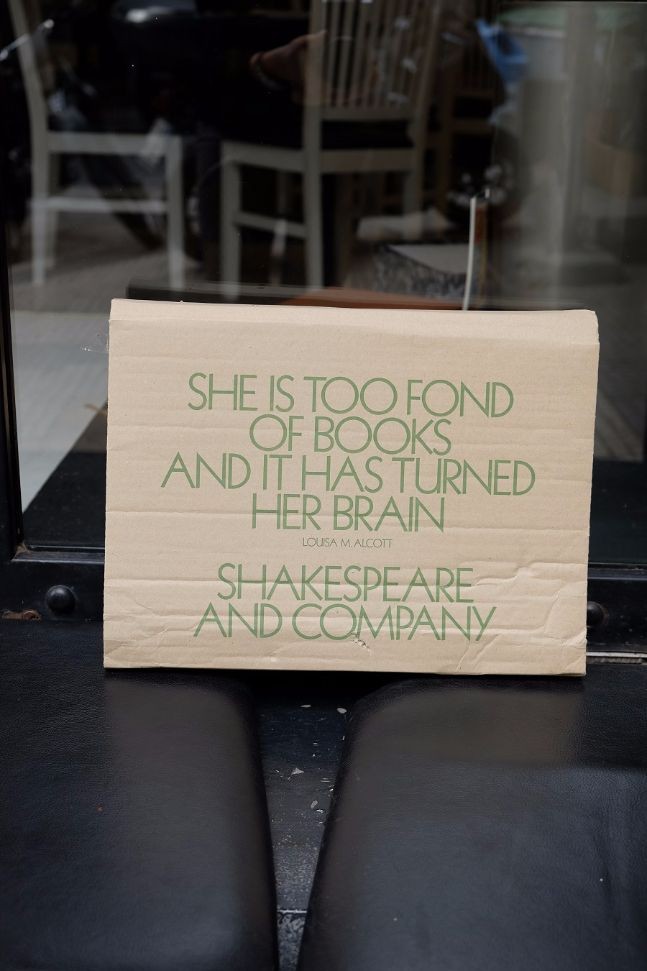 SHE IS TOO FOND
OF BOOKS
AND IT HAS TURNED
HER BRAIN
LOUISA M. ALCOTT
SHAKESPEARE
AND COMPANY